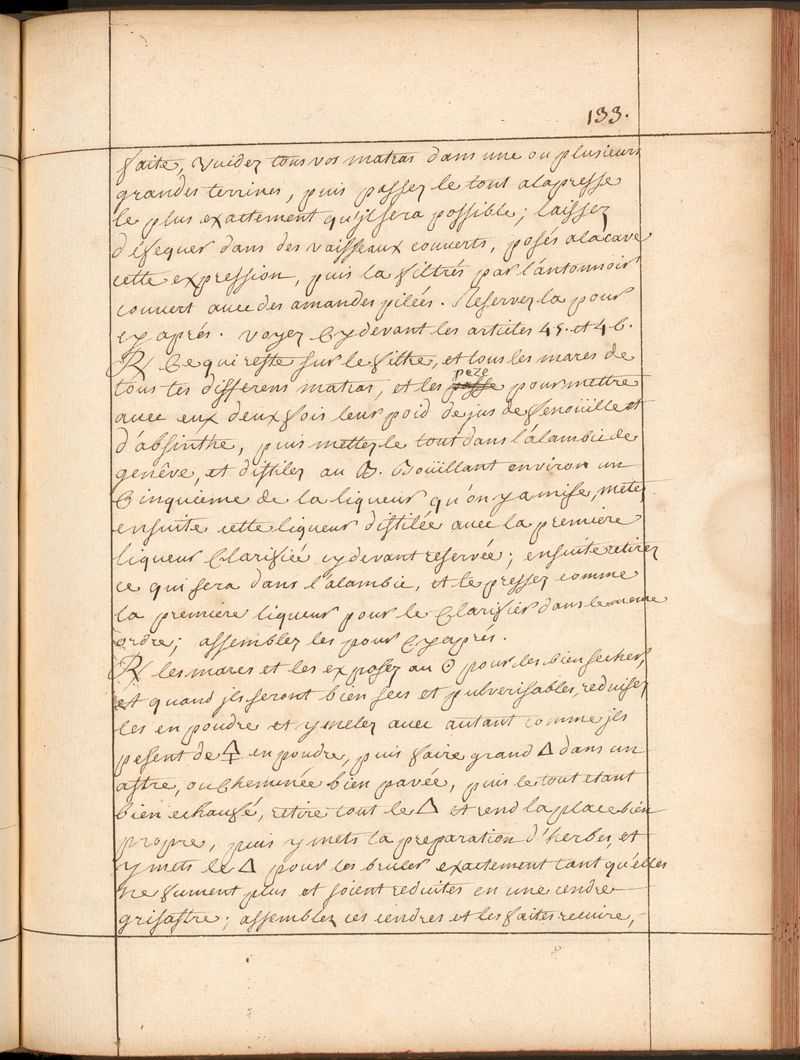 133.
faite, Vuidez tous vos matras dans une ou plusieurs
grandes terrines, puis passez le tout alapresse
le plus exactement qu'jl sera possible; laissez
déféquer dans des vaisseaux couverts, posés alacave
cette expression, puis la filtrés par l'antonnoir
couvert avec des amandes pilées. Reservez la pour
cy aprés. voyez Cy devant les articles 45. et 46.
℞ Ce qui reste sur le filtre, et tous les mares de
tous tes differens matras, et les peze pour mettre
avec eux deux fois leur poid de jus de fenoüille et
d'absinthe, puis mettez le tout dans l'alambic de
genêve, et distilez au B. Boüillant environ un
Cinquieme de la liqueur qu'on y a mise, metez
ensuite cette liqueur distilée avec la premiere
liqueur Clarifiée cy devant reservée; ensuite retirez
ce qui sera dans l'alambic, et le pressez comme
la premiere liqueur pour le Clarifier dans le meme
ordre; assemblez les pour Cy aprés.
℞ les mares et les exposez au ☉ pour les bien secher,
et quand jls seront bien secs et pulverisables, reduisez
les en poudre et y melez avec autant comme jls
pesent de 🜍 en poudre, puis faire grand △ dans un
astre, ou Cheminée bien pavée, puis le tout etant
bien echaufé, retire tout le △ et rend la place bien
propre, puis y mets la preparation d'herbes, et
y mets le △ pour les bruler exactement tant qu'elles
ne fument plus et soient reduites en une cendre
grisastre; assemblez ces cendres et les faites recuire,